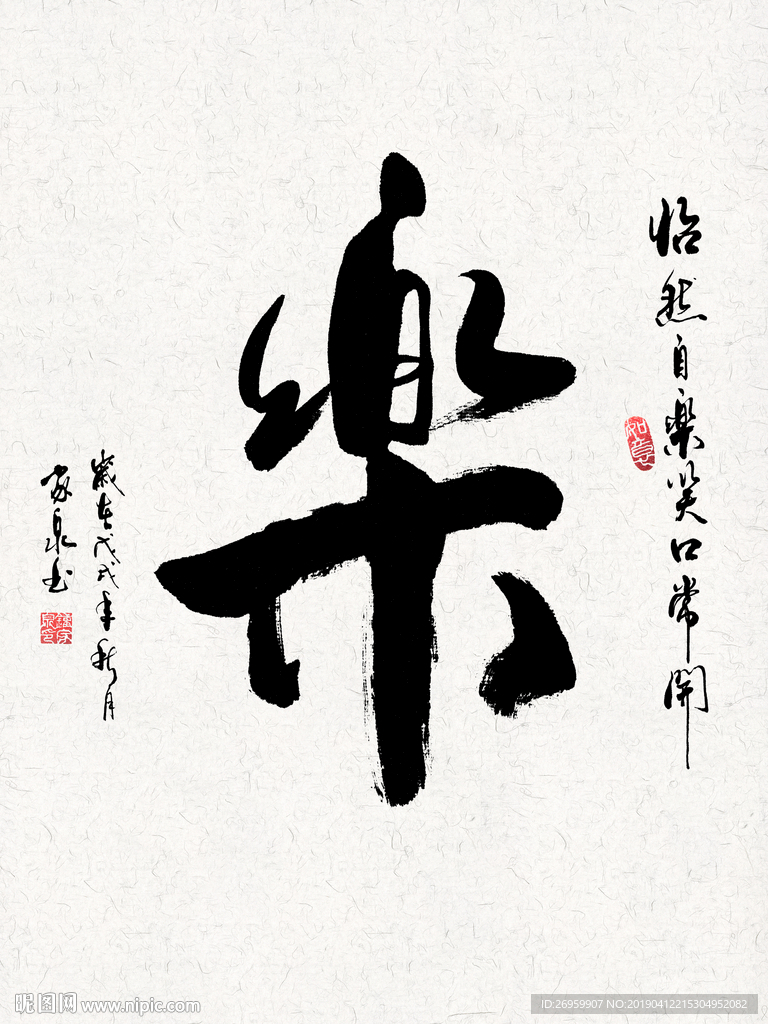 怡然自樂笑口常開
如意
樂
歲在戊戌年秋月
家泉书
昵图网 www.nipic.com
ID:26959907 NO:20190412215304952082